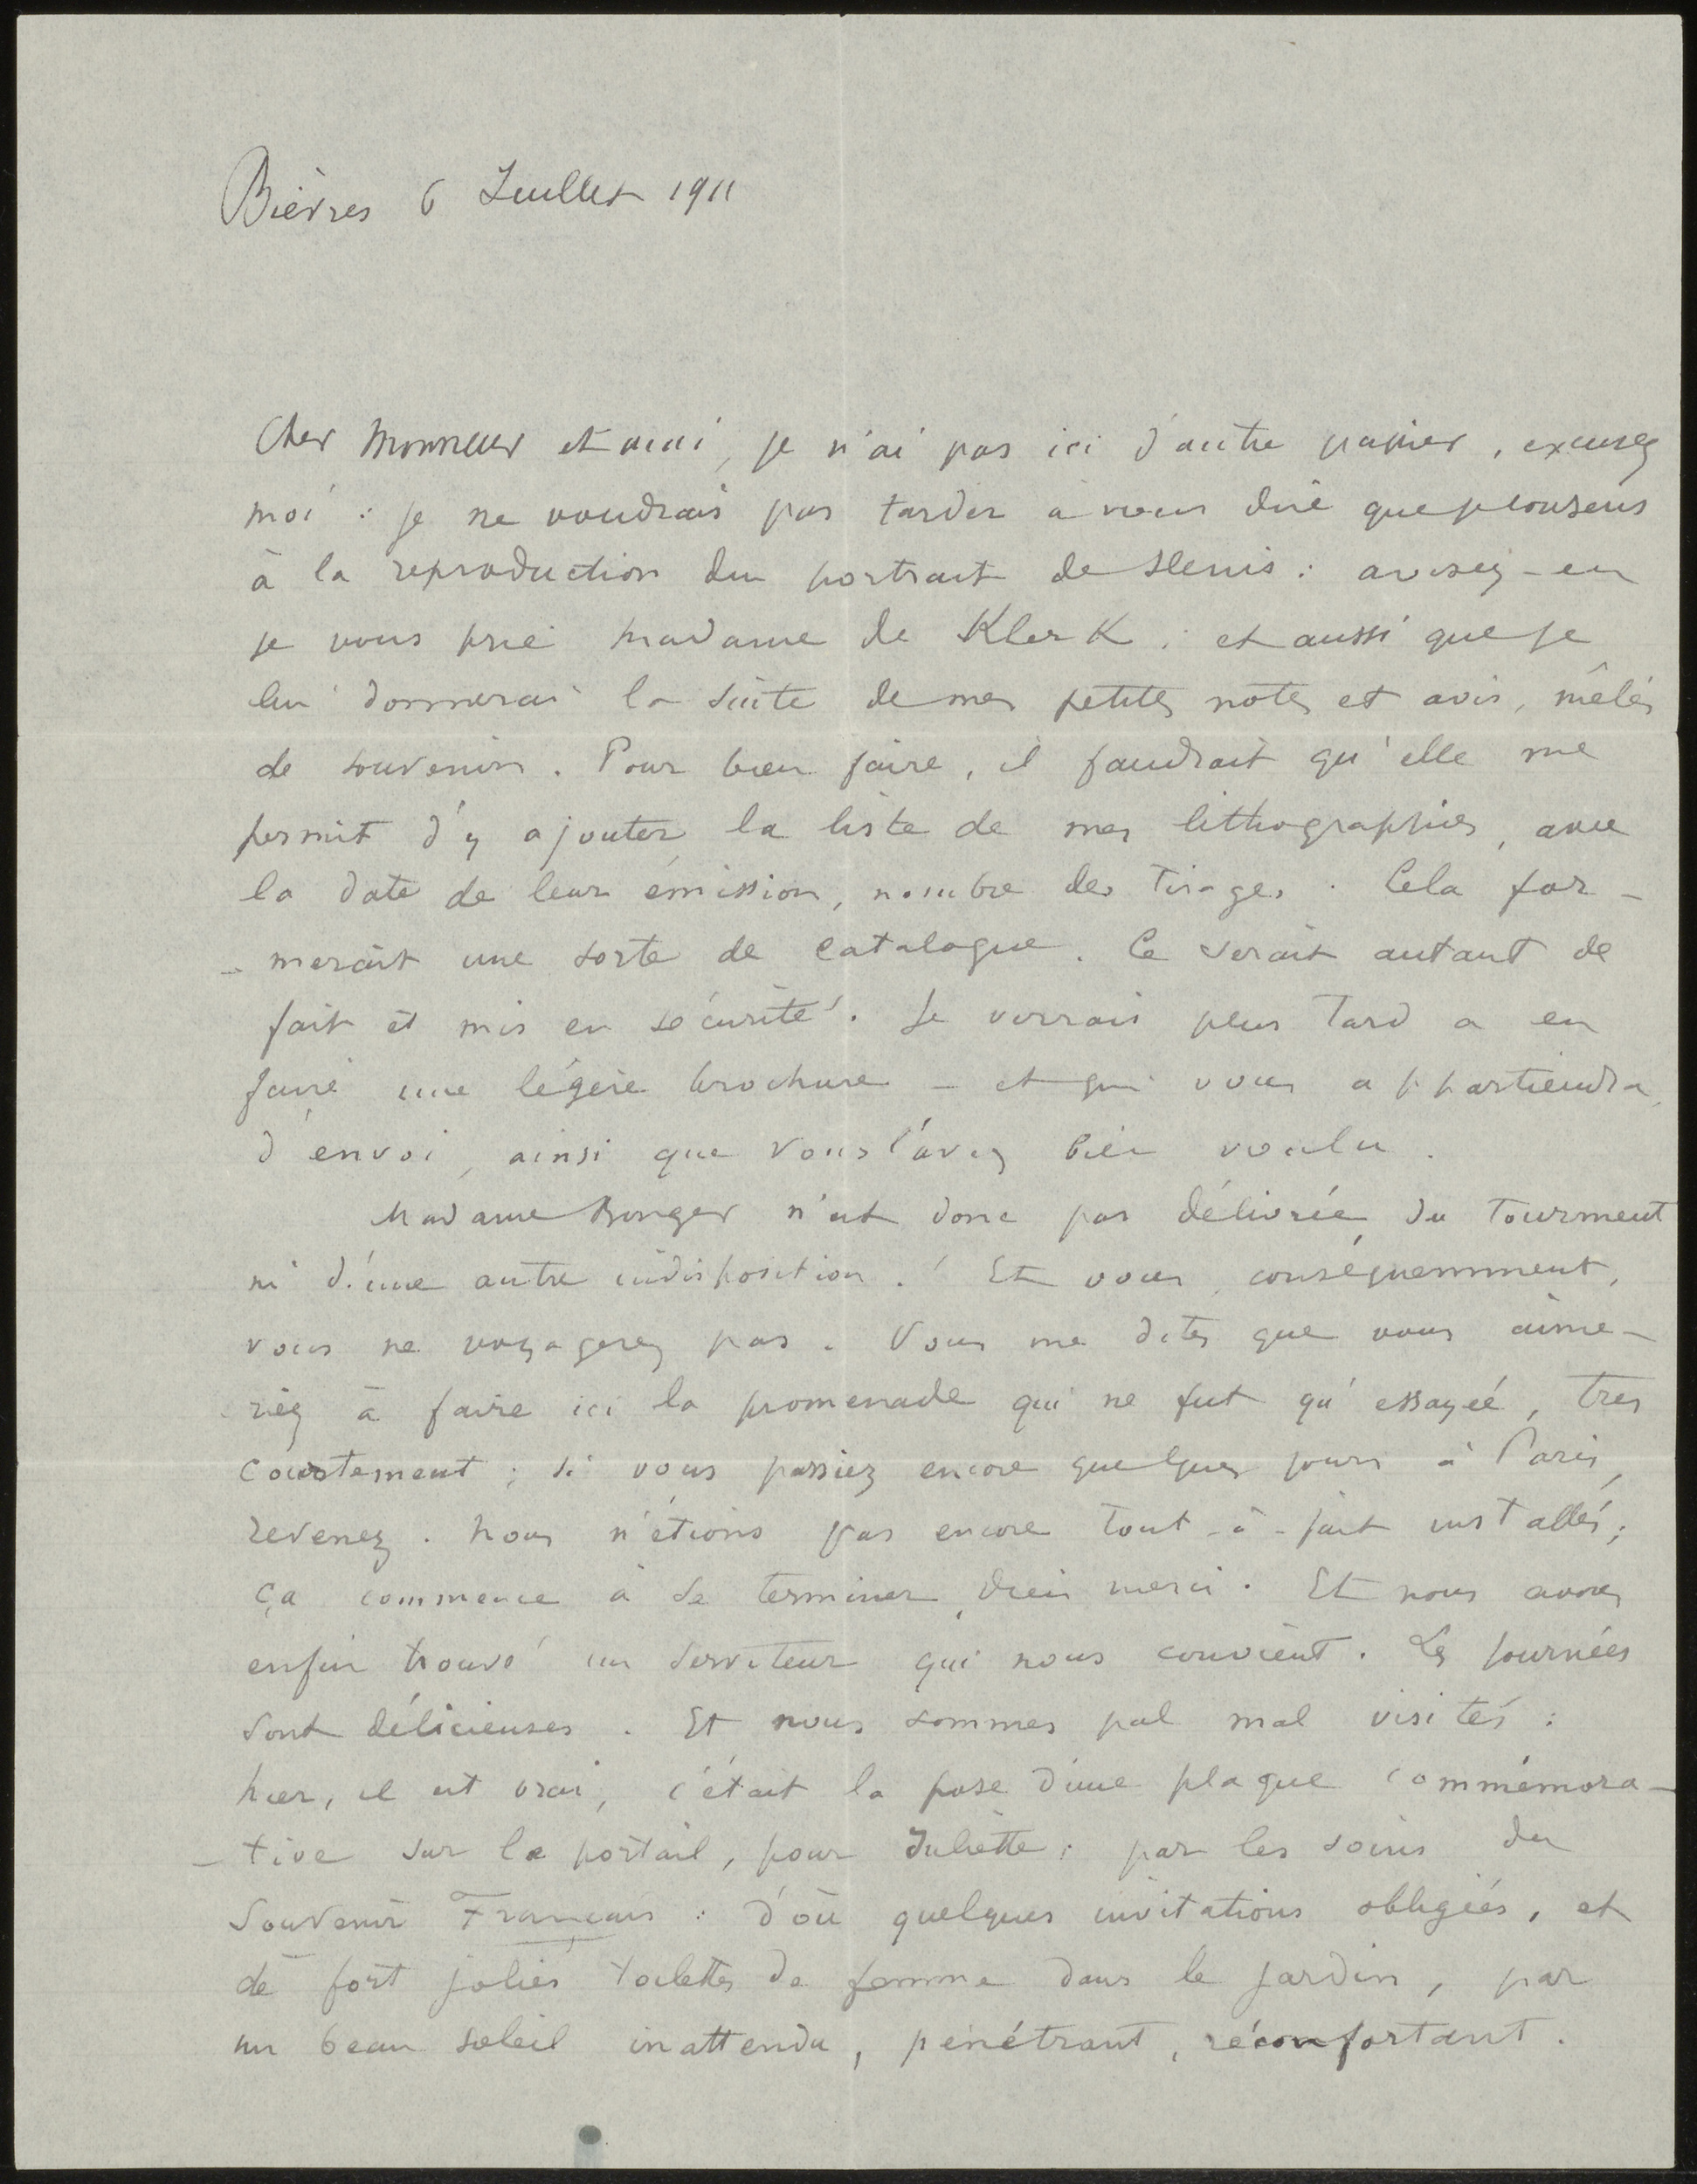 Bièvres 6 Juillet 1911
Cher Monsieur et ami, je n'ai pas ici d'autre papier, excusez
moi : je ne voudrais pas tarder à vous dire que je consens
à la reproduction du portrait de Denis : avisez-en
je vous prie Madame de Klerk ; et aussi que je
lui donnerai la suite de mes petites notes et avis, mêlés
de souvenirs. Pour bien faire, il faudrait qu'elle me
permit d'y ajouter la liste de mes lithographies, avec
la date de leur émission, nombre des tirages. Cela for-
-merait une sorte de catalogue. Ce serait autant de
fait et mis en sécurité. Je verrais plus tard a en
faire une légère brochure - et qui vous appartiendra,
d'envoi, ainsi que vous l'avez bien voulu.
Madame Bonger n'est donc pas délivrée du tourment
ni d'une autre indisposition ! Et vous, conséquemment,
vous ne voyagerez pas. Vous me dites que vous aime-
riez à faire ici la promenade qui ne fut qu'essayée, tres
courtement ; si vous passiez encore quelques jours à Paris,
revenez. Nous n'étions pas encore tout-à-fait installés ;
ça commence à se terminer, dieu merci. Et nous avons
enfin trouvé un serviteur qui nous convient. Les journées
sont délicieuses. Et nous sommes pal mal visités :
hier, il est vrai, c'était la pose d'une plaque commémora-
-tive sur le portail, pour Juliette ; par les soins du
Souvenir Français : d'où quelques invitations obligées, et
de fort jolies toilettes de femme dans le jardin, par
un beau soleil inattendu, pénétrant, réconfortant.